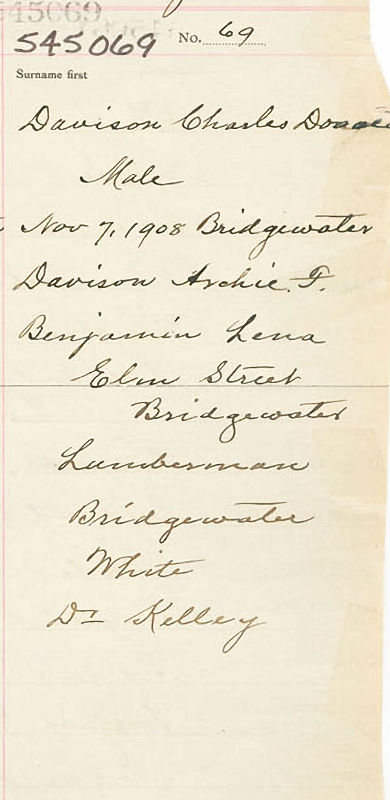 545069
545069 No. 69
Surname first
Davison Charles
Male
Nov 7, 1908 Bridgewater
Davison Archie. F.
Benjamin Lena
Elm Street
Bridgewater
Lumberman
Bridgewater
White
Dr Kelley